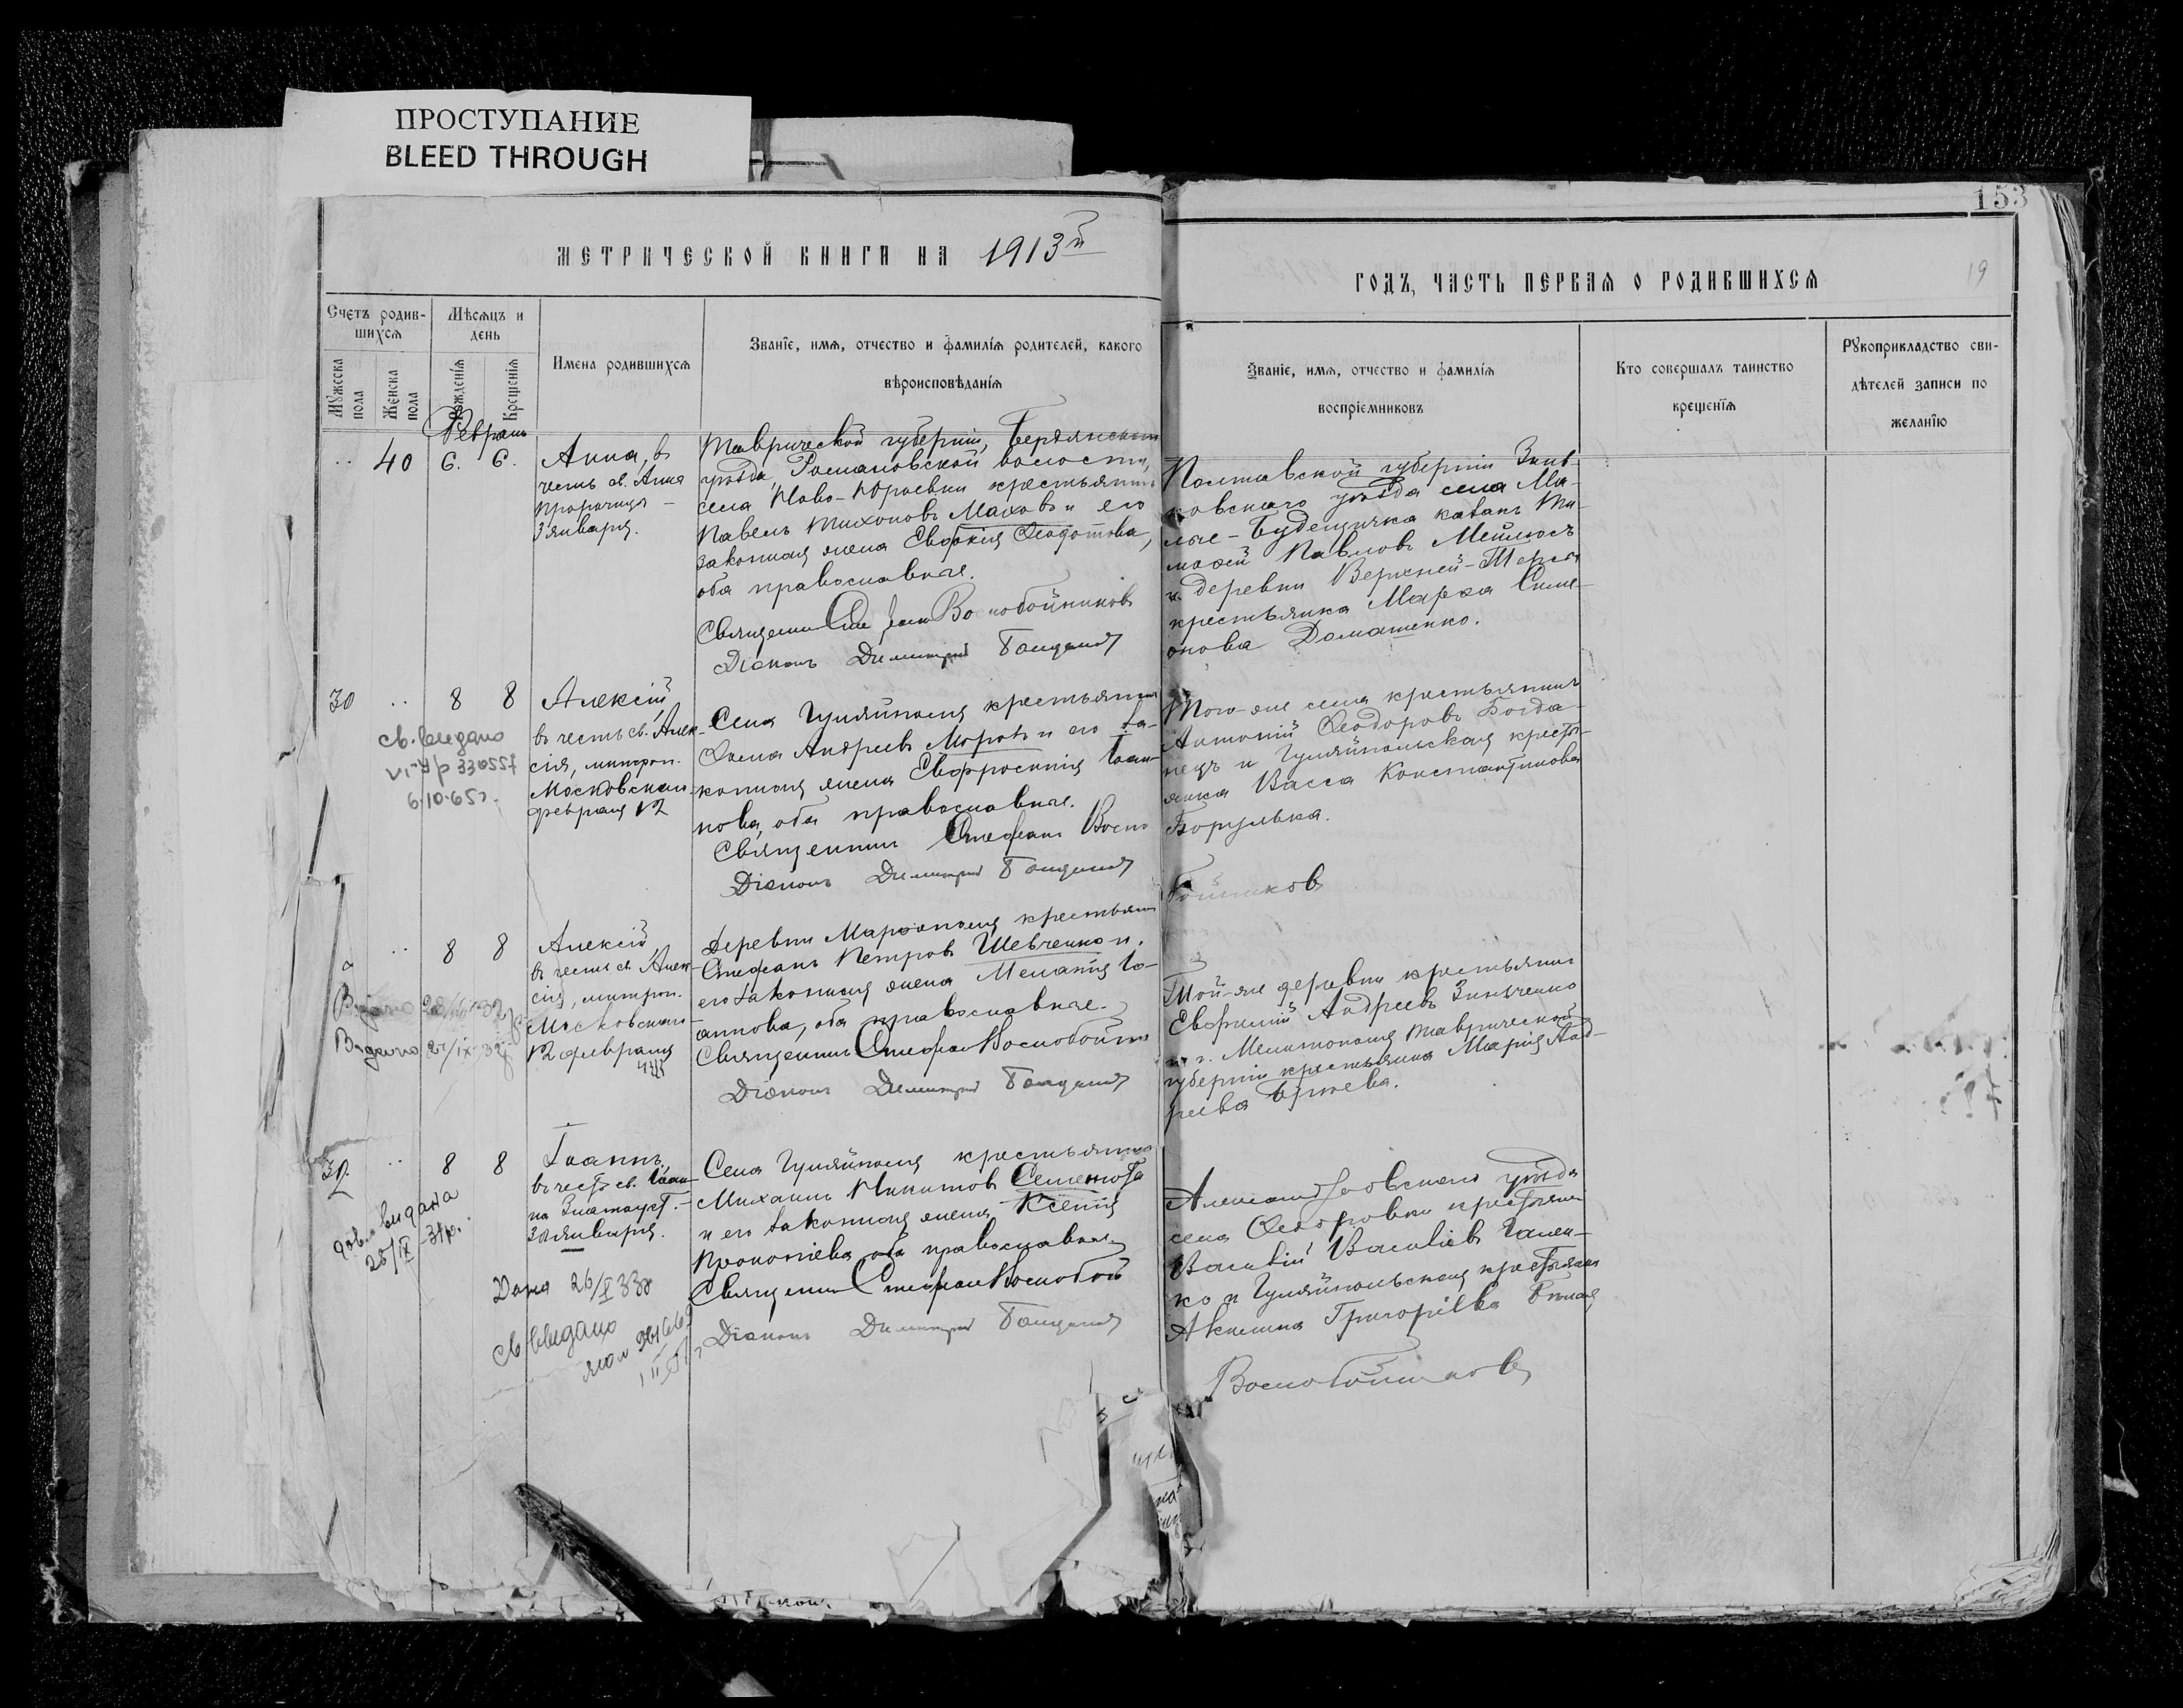 ПРОСТУПАНИЕ
BLEED THROUGH
153
19
МЕТРИЧЕСКОЙ КНИГИ НА 1913й
ГОДЪ, ЧАСТЬ ПЕРВАЯ О РОДИВШИХСЯ
Счетъ родив-
шихся
Мужеска
пола
Женска
пола
Мѣсяцъ и
день
Рожденія
Крещенія
Имена родившихся
Званіе, имя, отчество и фамилія родителей, какого
вѣроисповѣданія
Званіе, имя, отчество и фамилія
воспріемниковъ
Кто совершалъ таинство
крещенія
Рукоприкладство сви-
дѣтелей записи по
желанію
Февраль
40 6. 6.
Анна, въ
честь св. Анна
пророчица
3 января.
Таврической губерніи, Бердянскаго
уѣзда, Романовской волости,
села Ново-Юрьевки крестьянинъ
Павелъ Тихоновъ Маховъ и его
законная жена Евфимія Ѳеодотова,
оба православные.
Священникъ Воскобойниковъ
Діаконъ Димитрій
Полтавской губерніи Зинь-
ковскаго уѣзда села Ма-
лые-Будещичка казакъ Ти-
мофей Павловъ
и деревни Верхней-Терсы
крестьянка Марѳа Симе-
онова Домашенко.
30 8 8
св. видано
6.10.65г.
Алексій,
въ честь св. Алек-
сія, митроп.
Московскаго
февраля 12
Села Гуляйполя крестьянинъ
Ѳома Андреевъ Морозъ и его за-
конная жена Евфросинія Іоан-
нова, оба православные.
Священникъ Стефанъ Воско
бойниковъ
Діаконъ Димитрій
Того-же села крестьянинъ
Антоній Ѳеодоровъ Богда-
нецъ и Гуляйпольская кресть-
янка Васса Константинова
8 8
Видано
Видано 21/IX-32
Алексій
въ честь св. Алек-
сія, митроп.
Московскаго
12 февраля
Деревни Марфополя крестьянинъ
Стефанъ Петровъ Шевченко и
его законная жена Меланія Іо-
аннова, оба православные.
Священникъ Стефанъ Воскобойни
Діаконъ Димитрій
Той-же деревни крестьянинъ
Евфимій Андреевъ Зинченко
и г. Мелитополя Таврической
губерніи крестьянка Марія Анд-
реева
32 8 8
видана
25/IX-31р.
Дана 26/X 33г
св видано
Іоаннъ,
въ честь св. Іоан-
на Златоуст.
30 января.
Села Гуляйполя крестьянинъ
Михаилъ Никитовъ Семенюта
и его законная жена Ксенія
Прокопіева оба православные
Священникъ Стефанъ Воскобой
Діаконъ Димитрій
Александровскаго уѣзда
села Ѳедоровки крестьянинъ
Василій Васильевъ Гален-
ко и Гуляйпольская крестьянка
Акилина Григоріева
Воскобойниковъ